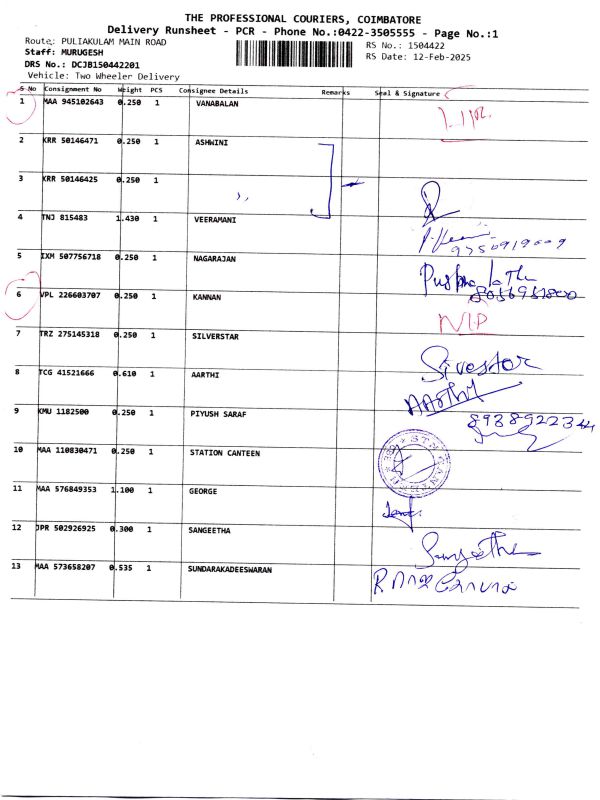 THE PROFESSIONAL COURIERS, COIMBATORE
Delivery Runsheet - PCR - Phone No.:0422-3505555 - Page No.:1
Route: PULIAKULAM MAIN ROAD
RS No.: 1504422
Staff: MURUGESH
RS Date: 12-Feb-2025
DRS No.: DCJB150442201
Vehicle: Two Wheeler Delivery
S No Consignment No Weight PCS Consignee Details Remarks Seal & Signature
1 MAA 945102643 0.250 1 VANABALAN
2 KRR 50146471 0.250 1 ASHWINI
3 KRR 50146425 0.250 1 ,,
4 TNJ 815483 1.430 1 VEERAMANI
9750919009
5 IXM 507756718 0.250 1 NAGARAJAN
8056951800
6 VPL 226603707 0.250 1 KANNAN
N/P
7 TRZ 275145318 0.250 1 SILVERSTAR
Sivestor
8 TCG 41521666 0.610 1 AARTHI
AARTHI
9 KMU 1182500 0.250 1 PIYUSH SARAF
8938922344
10 MAA 110830471 0.250 1 STATION CANTEEN
11 MAA 576849353 1.100 1 GEORGE
12 JPR 502926925 0.300 1 SANGEETHA
Sangeetha
13 MAA 573658207 0.535 1 SUNDARAKADEESWARAN